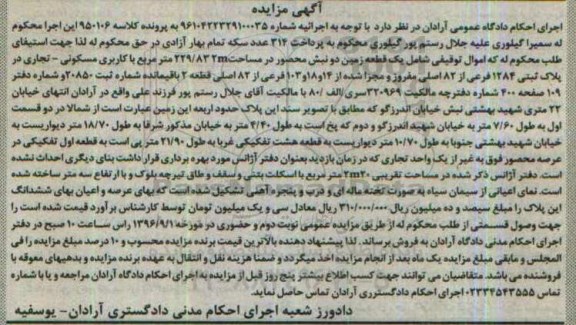 آگهی مزایده
اجرای احکام دادگاه عمومی آرادان در نظر دارد با توجه به اجرائیه شماره ۹۶۱۰۴۲۲۳۲۹۱۰۰۰۳۵ به پرونده کلاسه ۹۵۰۱۰۶ این اجرا محکوم
له سمیرا گیلوری علیه جلال رستم پور گیلوری محکوم به پرداخت ۳۱۴ عدد سکه تمام بهار آزادی در حق محکوم له لذا جهت استیفای
طلب محکوم له که اموال توقیفی شامل یک قطعه زمین دو نبش محصور در مساحت ۲۲۹/۸۳ ۲m متر مربع با کاربری مسکونی - تجاری در
پلاک ثبتی ۱۲۸۴ فرعی از ۸۲ اصلی مفروز و مجزا شده از ۱۴و۱۸و۱۰۳ فرعی از ۸۲ اصلی قطعه ۲ باقیمانده شماره ثبت ۲۰۸۵۰ و شماره دفتر
۱۰۹ صفحه ۴۰۰ شماره دفترچه مالکیت ۳۲۰۹۶۹سری/الف /۸۰ با مالکیت آقای جلال رستم پور فرزند علی واقع در آرادان انتهای خیابان
۲۲ متری شهید بهشتی نبش خیابان اندرزگو که مطابق با تصویر سند این پلاک حدود اربعه این زمین عبارت است از شمالا در دو قسمت
اول به طول ۷/۶۰ متر به خیابان شهید اندرزگو و دوم که پخ است به طول ۴/۴۰ متر به خیابان مذکور شرقا به طول ۱۸/۷۰ متر دیواریست به
خیابان شهید بهشتی جنوبا به طول ۱۰/۷۰ متر دیواریست به قطعه هشت تفکیکی غربا به طول ۲۱/۹۰ متر پی است به قطعه اول تفکیکی در
عرصه محصور فوق به غیر از یک واحد تجاری که در زمان بازدید بعنوان دفتر آژانس مورد بهره برداری قرار داشت بنای دیگری احداث نشده
است. دفتر آژانس ذکر شده در مساحت تقریبی ۲۰ ۲m متر مربع با اسکلت بتنی و سقف و طاق تیرچه بلوک و با ارتفاع سه متر ساخته شده
است. نمای اعیانی از سیمان سیاه به صورت تخته ماله ای و درب و پنجره آهنی تشکیل شده است که بهای عرصه و اعیان بهای ششدانگ
این پلاک را مبلغ سیصد و ده میلیون ریال ۳۱۰/۰۰۰/۰۰۰ ریال معادل سی و یک میلیون تومان توسط کارشناس برآورد قیمت شده است را
جهت وصول قسمتی از طلب محکوم له از طریق مزایده عمومی نوبت دوم و حضوری در مورخه ۱۳۹۶/۹/۱ راس ساعت ۱۰ صبح در دفتر
اجرای احکام مدنی دادگاه آرادان به فروش برساند. لذا پیشنهاد دهنده بالاترین قیمت برنده مزایده محسوب و ۱۰ درصد مبلغ مزایده را فی
المجلس و مابقی مبلغ مزایده یک ماه بعد از انجام مزایده اخذ میگردد و ضمنا هزینه نقل و انتقال به عهده برنده مزایده و بدهیهای معوقه با
فروشنده می باشد. متقاضیان می توانند جهت کسب اطلاع بیشتر پنج روز قبل از مزایده به اجرای احکام دادگاه آرادان مراجعه و یا با شماره
تماس ۰۲۳۳۴۵۴۳۵۵۵ اجرای احکام دادگستری آرادان تماس حاصل نماید.
دادورز شعبه اجرای احکام مدنی دادگستری آرادان- یوسفیه